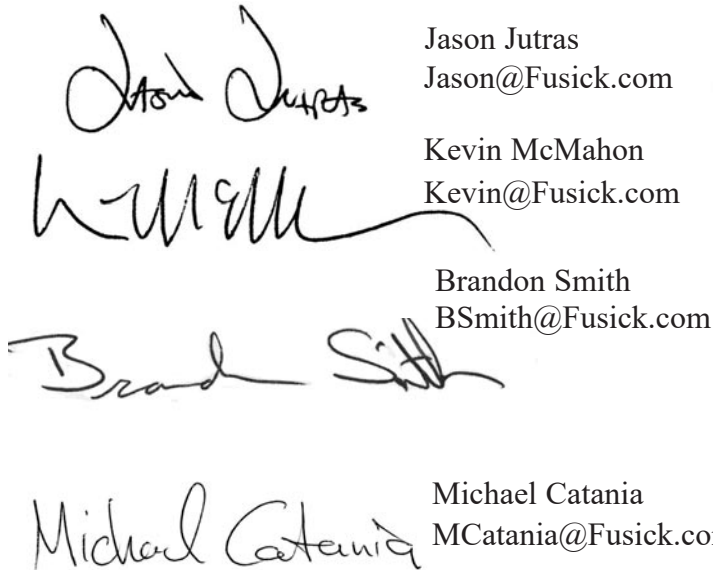 Jason Jutras
Jason Jutras
Jason@Fusick.com
Kevin McMahon
Kevin@Fusick.com
Brandon Smith
BSmith@Fusick.com
Michael Catania
Michael Catania
MCatania@Fusick.co